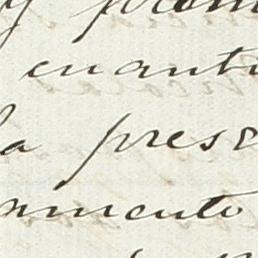 y prom
cuanti
la prese
mento